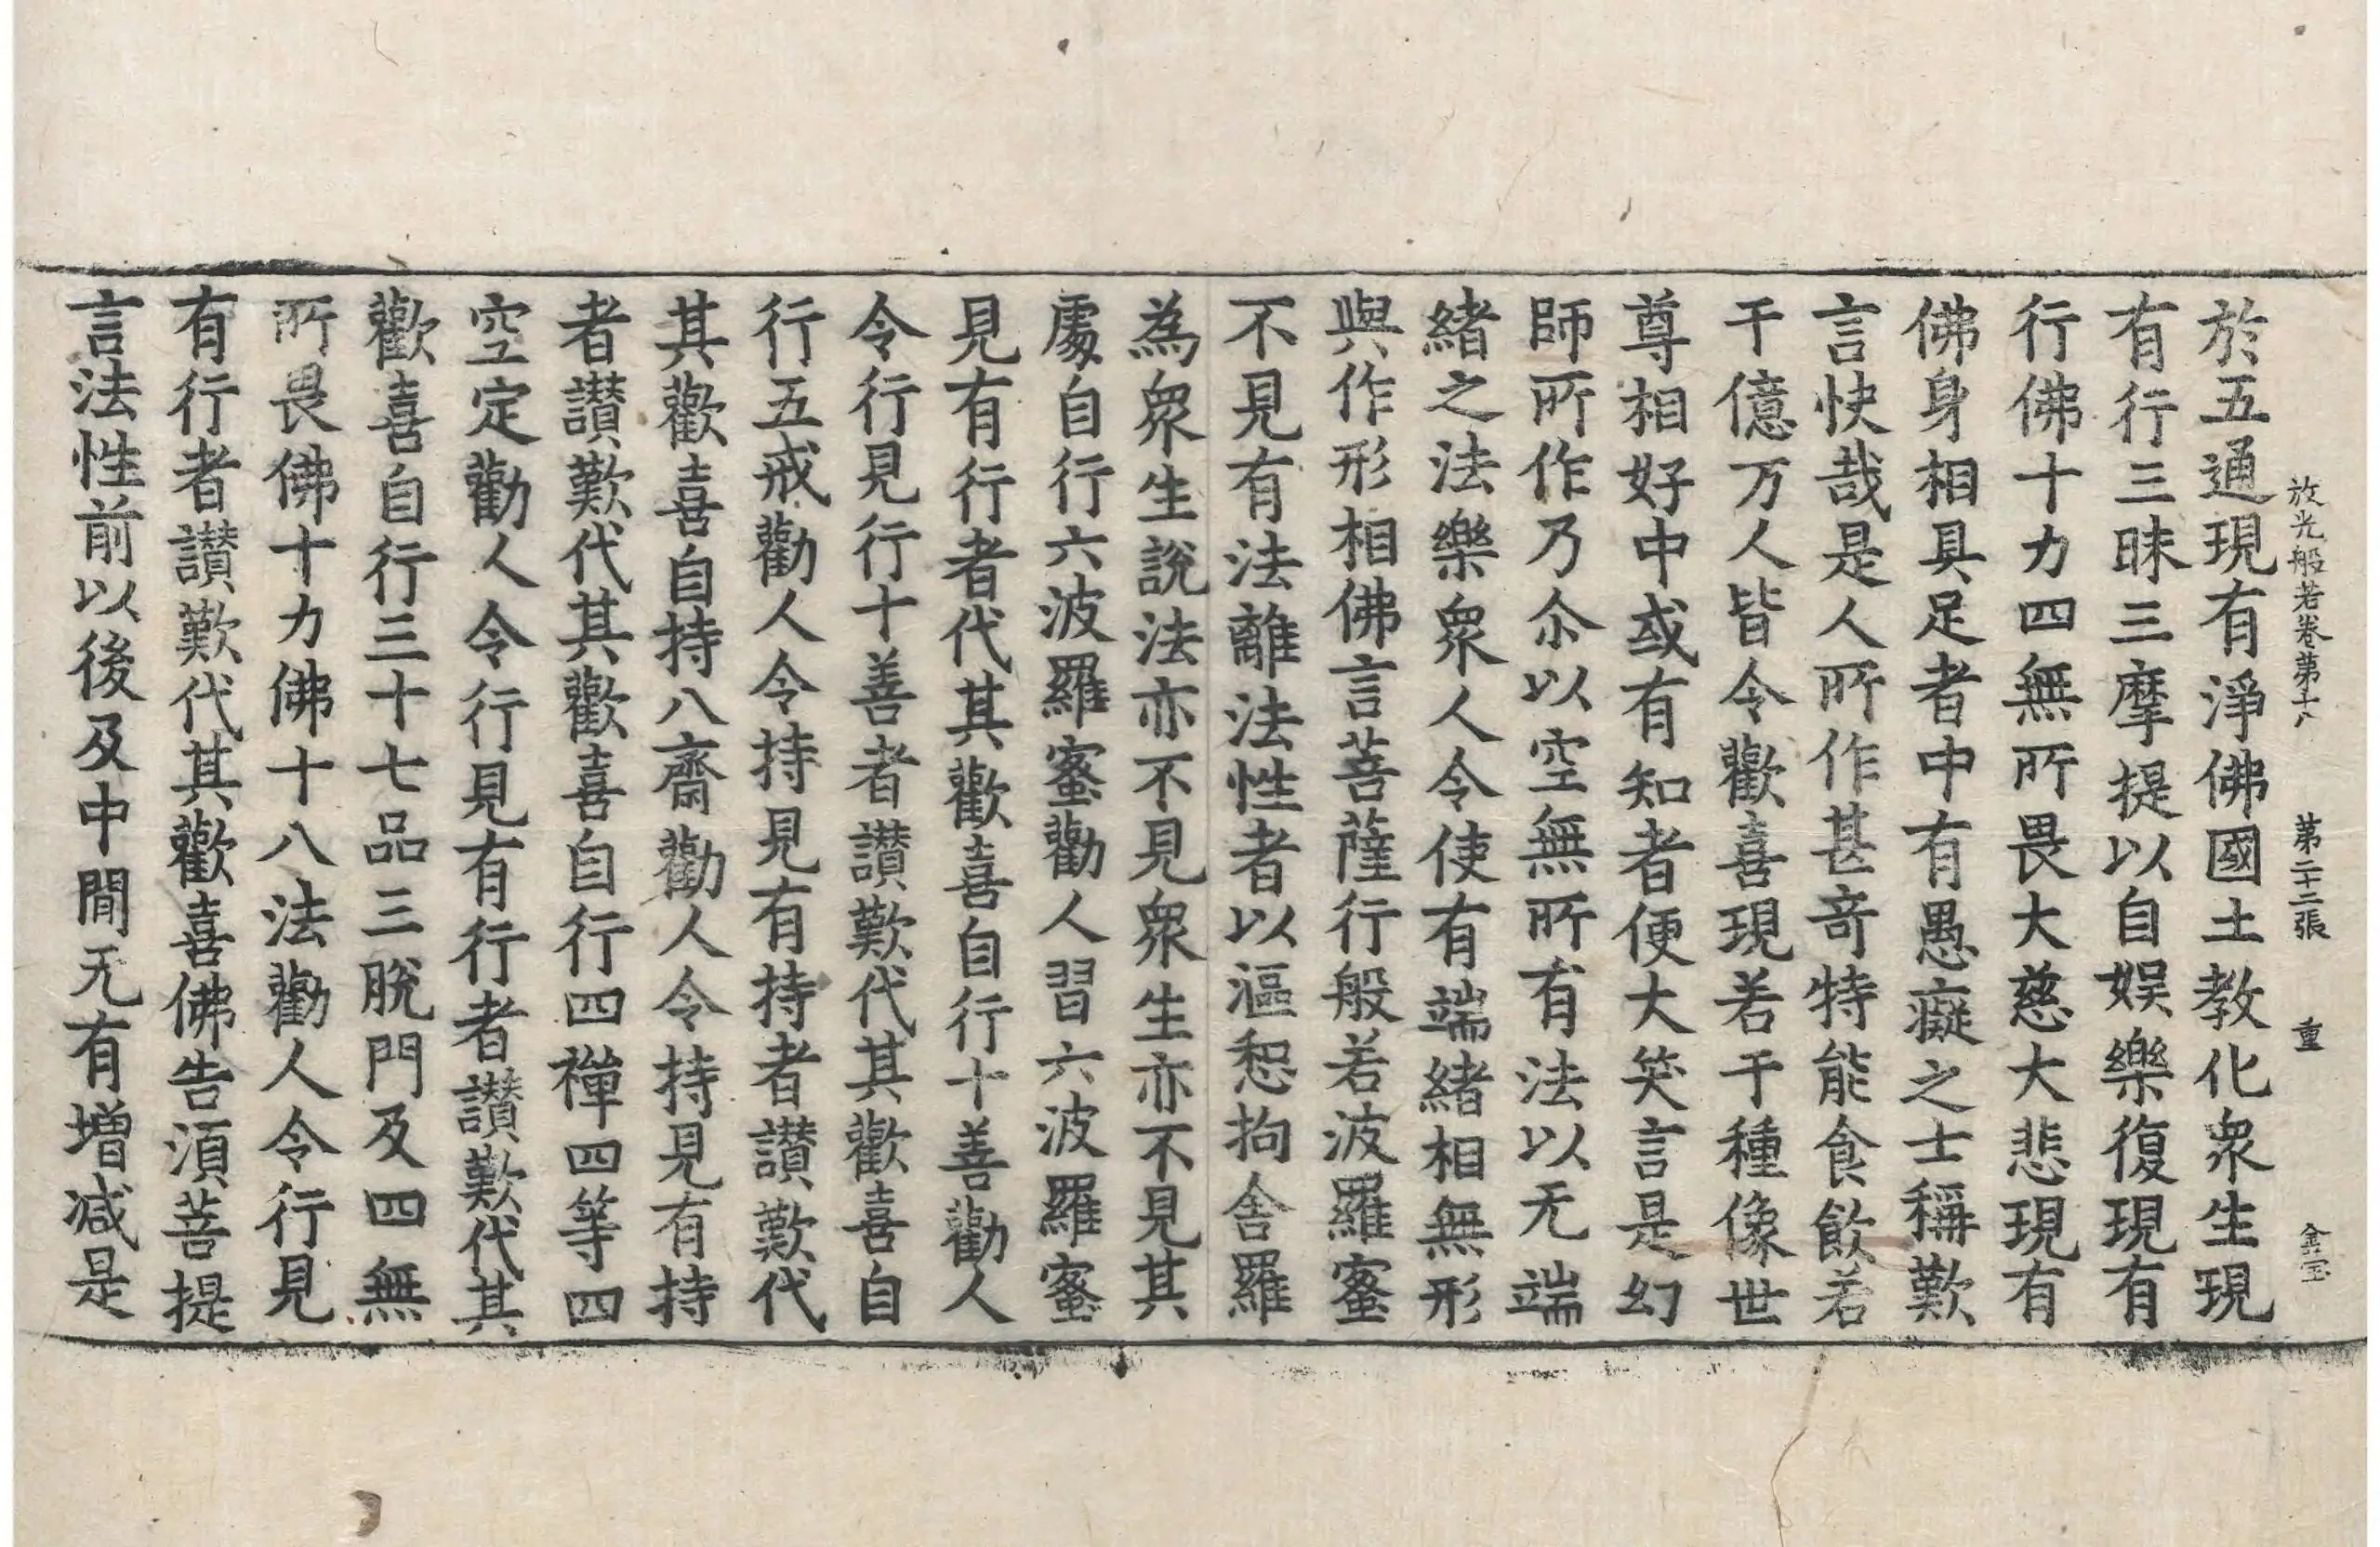 放光般若卷第十八 第二十二張 重 金宝
於五通現有淨佛國土教化衆生現
有行三昧三摩提以自娛樂復現有
行佛十力四無所畏大慈大悲現有
佛身相具足者中有愚癡之士稱歎
言快哉是人所作甚奇特能食飲若
干億万人皆令歡喜現若干種像世
尊相好中或有知者便大笑言是幻
師所作乃尒以空無所有法以无端
緒之法樂衆人令使有端緒相無形
與作形相佛言菩薩行般若波羅蜜
不見有法離法性者以漚恕拘舍羅
為衆生說法亦不見衆生亦不見其
處自行六波羅蜜勸人習六波羅蜜
見有行者代其歡喜自行十善勸人
令行見行十善者讃歎代其歡喜自
行五戒勸人令持見有持者讃歎代
其歡喜自持八齋勸人令持見有持
者讃歎代其歡喜自行四禪四等四
空定勸人令行見有行者讃歎代其
歡喜自行三十七品三脫門及四無
所畏佛十力佛十八法勸人令行見
有行者讃歎代其歡喜佛告湏菩提
言法性前以後及中間无有增減是